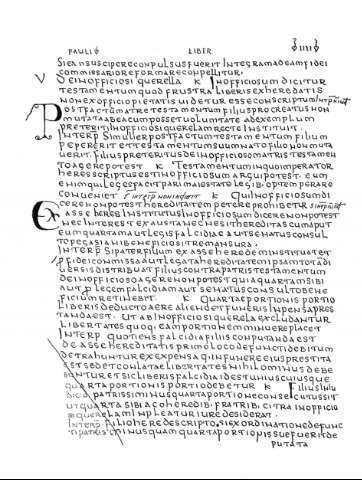 PAULI LIBER IIII
SICANSUSCIPERECONPULSUSFUERIT INTEGRAMADEAMFIDEI
COMMISSARIOREFORMARECONPELLITUR.
V DEINOFFICIOSI QUERELLA K INOFFICIOSUM DICITUR
TESTAMENTUMQUODFRUSTRALIBERISEXHEREDATIS
NONEXOFFICIOPIETATIS UIDETUR ESSECONSCRIPTUM
POSTFACTUMATRETESTAMENTUMFILIUSPROCREATUSNON
MUTATAABEACUMPOSSETUOLUNTATE ADEXEMPLUM
PRETERITIINOFFICIOSIQUERELAMRECTE INSTITUIT.
INTERP SIMULIERPOSTFACTUMTESTAMENTUM FILIUM
PEPERERIT ETTESTAMENTUMSUUMNATOFILIONONMUTA
UERIT. FILIUSPRETERITUSDEINOFFICIOSOMATRISTESTAMEN
TOAGEREPOTEST K TESTAMENTUMINQUOIMPERATOR
HERESSCRIPTUSESTINOFFICIOSUMARGUIPOTEST. EUM
ENIMQUILEGESFACITPARIMAIESTATELEGIB. OPTEMPERARE
CONUENIET K QUIINOFFICIOSUMDI
CERENONPOTESTHEREDITATEMPETEREPROHIBETUR
EXASSEHERESINSTITUTUSINOFFICIOSUMDICERENONPOTEST
NECINTEREST EXAUSTANECNESITHEREDITASCUMAPUT
EUMQUARTAMAUTLEGISFALCIDIAEAUTSENATUSCONSUL
TOPEGASIANIBENEFICIOSITREMANSURA.
INTERP SIPATERFILIUM EX ASSEHEREDEMINSTITUATET
FIDEICOMMISSAAUTLEGATAHEREDITATEMIPSAMTOTADI
UERISDISTRIBUAT FILIUSCONTRAPATRISTESTAMENTUM
DEINOFFICIOSOAGERENONPOTESTQUIAQUARTAMSIBI
AUT PLEGEMFALCIDIAM AUTSENATUS CONSULTOBENE
FICIUMRETINEBIT K QUARTAEPORTIONIS PORTIO
LIBERISDEDUCTOAEREALIENOETFUNERISINPENSAPRES
TANDAEST. UTABINOFFICIOSIQUERELAEXCLUDANTUR
LIBERTATES QUOQ. EAMPORTIONEMMINUEREPLACET
INTERP QUOTIENSFALCIDIAFILIISCONPUTANDAEST
DEASSEHEREDITATISPRIMOLOCODEFUNCTIDEBITUM
DETRAHUNTUREXEXPENSAQINFUNEREEIUSPRESTITA
ESTSEDETCONLATAELIBERTATESNIHILOMINUSDEBE
NTURETSICLIBERISFALCIDIADESTUNIUSCUIUSQUE
QUARTAPORTIONISPORTIODEBETUR K FILIUSIUDI
PATRISSIMINUSQUARTAPORTIONECONSECUTUSSIT
UTQUARTA SIBIACOHEREDIB. FRATRIB. CITRAINOFFICIO
QUERELAMINPLEATURIUREDESIDERAT.
INTERP. FILIOHEREDESCRIPTO. SIEXORDINATIONEDEFUNC
TIPATRISMINUSQUAMQUARTAPORTIONISSUEFUERITDE
PUTATA